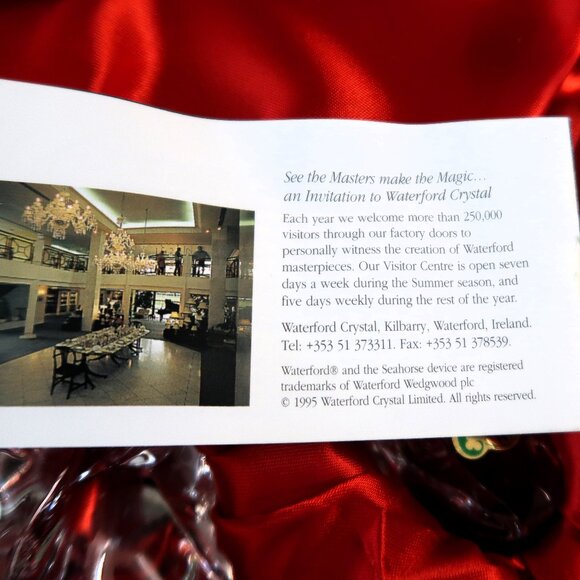 See the Masters make the Magic...
an Invitation to Waterford Crystal
Each year we welcome more than 250,000
visitors through our factory doors to
personally witness the creation of Waterford
masterpieces. Our Visitor Centre is open seven
days a week during the Summer season, and
five days weekly during the rest of the year.
Waterford Crystal, Kilbarry, Waterford, Ireland.
Tel: +353 51 373311. Fax: +353 51 378539.
Waterford® and the Seahorse device are registered
trademarks of Waterford Wedgwood plc
© 1995 Waterford Crystal Limited. All rights reserved.